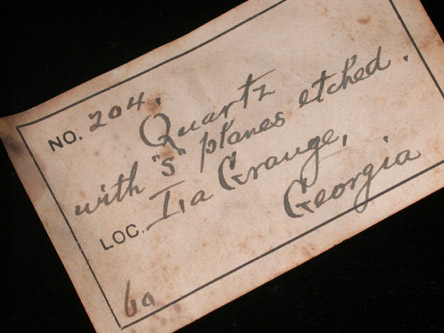 NO. 204.
Quartz
with "s" planes etched.
LOC. La Grange,
Georgia
6a